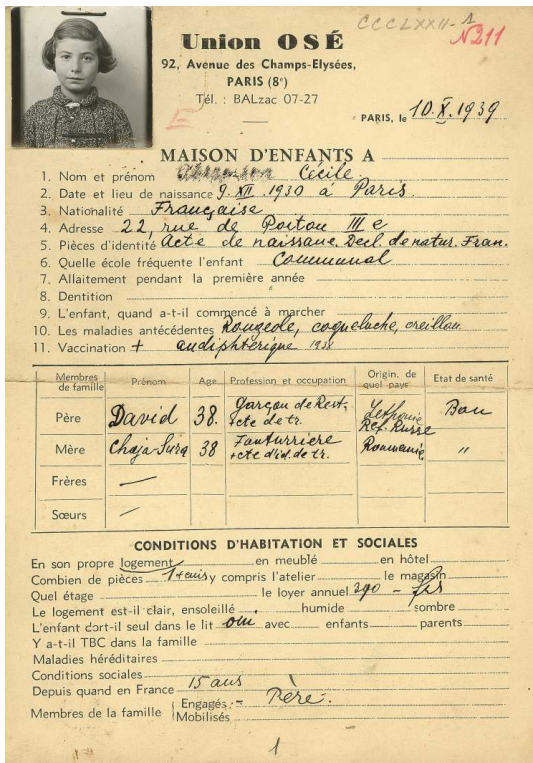 CCCLXXII-1
N211
Union OSÉ
92, Avenue des Champs-Elysées,
PARIS (8e)
Tél. : BALzac 07-27
E
PARIS, le 10.X.1939
MAISON D'ENFANTS A
1. Nom et prénom Cécile
2. Date et lieu de naissance 9.XII.1930 à Paris
3. Nationalité Française
4. Adresse 22, rue de Poitou III e
5. Pièces d'identité Acte de naissance. Decl. de natur. Fran.
6. Quelle école fréquente l'enfant Communal
7. Allaitement pendant la première année
8. Dentition
9. L'enfant, quand a-t-il commencé à marcher
10. Les maladies antécédentes Rougeole, coqueluche, oreillon
11. Vaccination + andiphtérique 1938
Membres de famille Prénom Age Profession et occupation Origin. de quel pays Etat de santé
Père David 38. garçon de Rest. + cte de tr. Ref. Russe Bon
Mère Chaja Sura 38 + cte d'id. de tr. Roumanie "
Frères —
Sœurs —
CONDITIONS D'HABITATION ET SOCIALES
En son propre logement en meublé en hôtel
Combien de pièces 1 + cuis y compris l'atelier le magasin
Quel étage le loyer annuel 390 - frs
Le logement est-il clair, ensoleillé humide sombre
L'enfant dort-il seul dans le lit oui avec enfants parents
Y a-t-il TBC dans la famille
Maladies héréditaires
Conditions sociales
Depuis quand en France 15 ans
Membres de la famille Engagés - Père.
Mobilisés
1